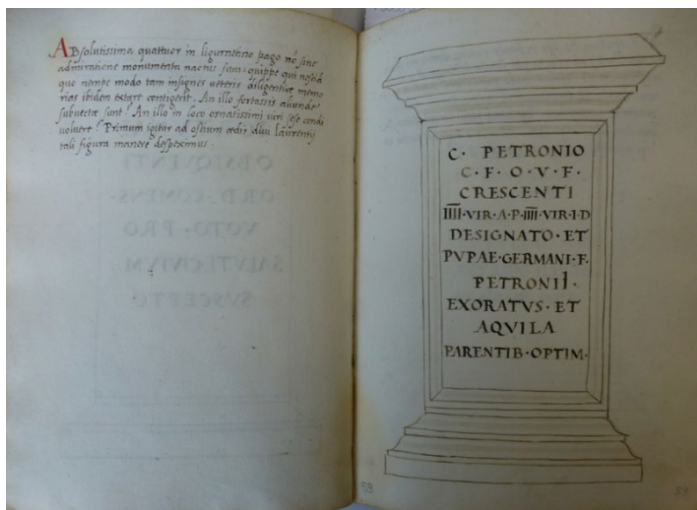 ABsolutissima quattuor in ligurnenno pago nõ sine
admiratione monumenta nactus sum: quippe qui noscã
quo nempe modo tam insignes veteris diligentiæ memo
rias ibidem extare contigerit. An illo fortassis aliunde
subvectæ sunt? An illo in loco ornatissimi viri sese condi
voluere? Primum igitur ad ostium ædis divi Laurentij
tali figura manere despeximus.
C. PETRONIO
C · F · O · V · F ·
CRESCENTI
IIII · VIR · A · P · IIII · VIR · I · D
DESIGNATO · ET
PVPAE · GERMANI · F ·
PETRONII ·
EXORATVS · ET
AQVILA
PARENTIB · OPTIM ·
OBSIQVENTI
ORD · COMENS ·
VOTO · PRO
SALVTE CIVIVM
SVSCEPTO
59